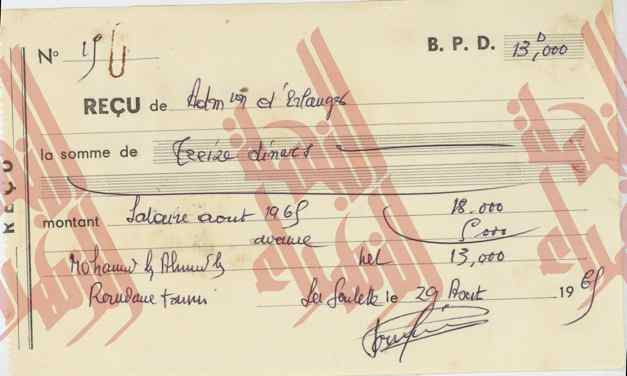 N° 15 B. P. D. 13 D,000
REÇU de Admon d'Erlanger
la somme de Treize dinars
montant Salaire aout 1965 18.000
avance 5.000
Mohamed b Ahmed b net 13,000
Romdane
La Goulette le 29 Aout 1965
REÇU